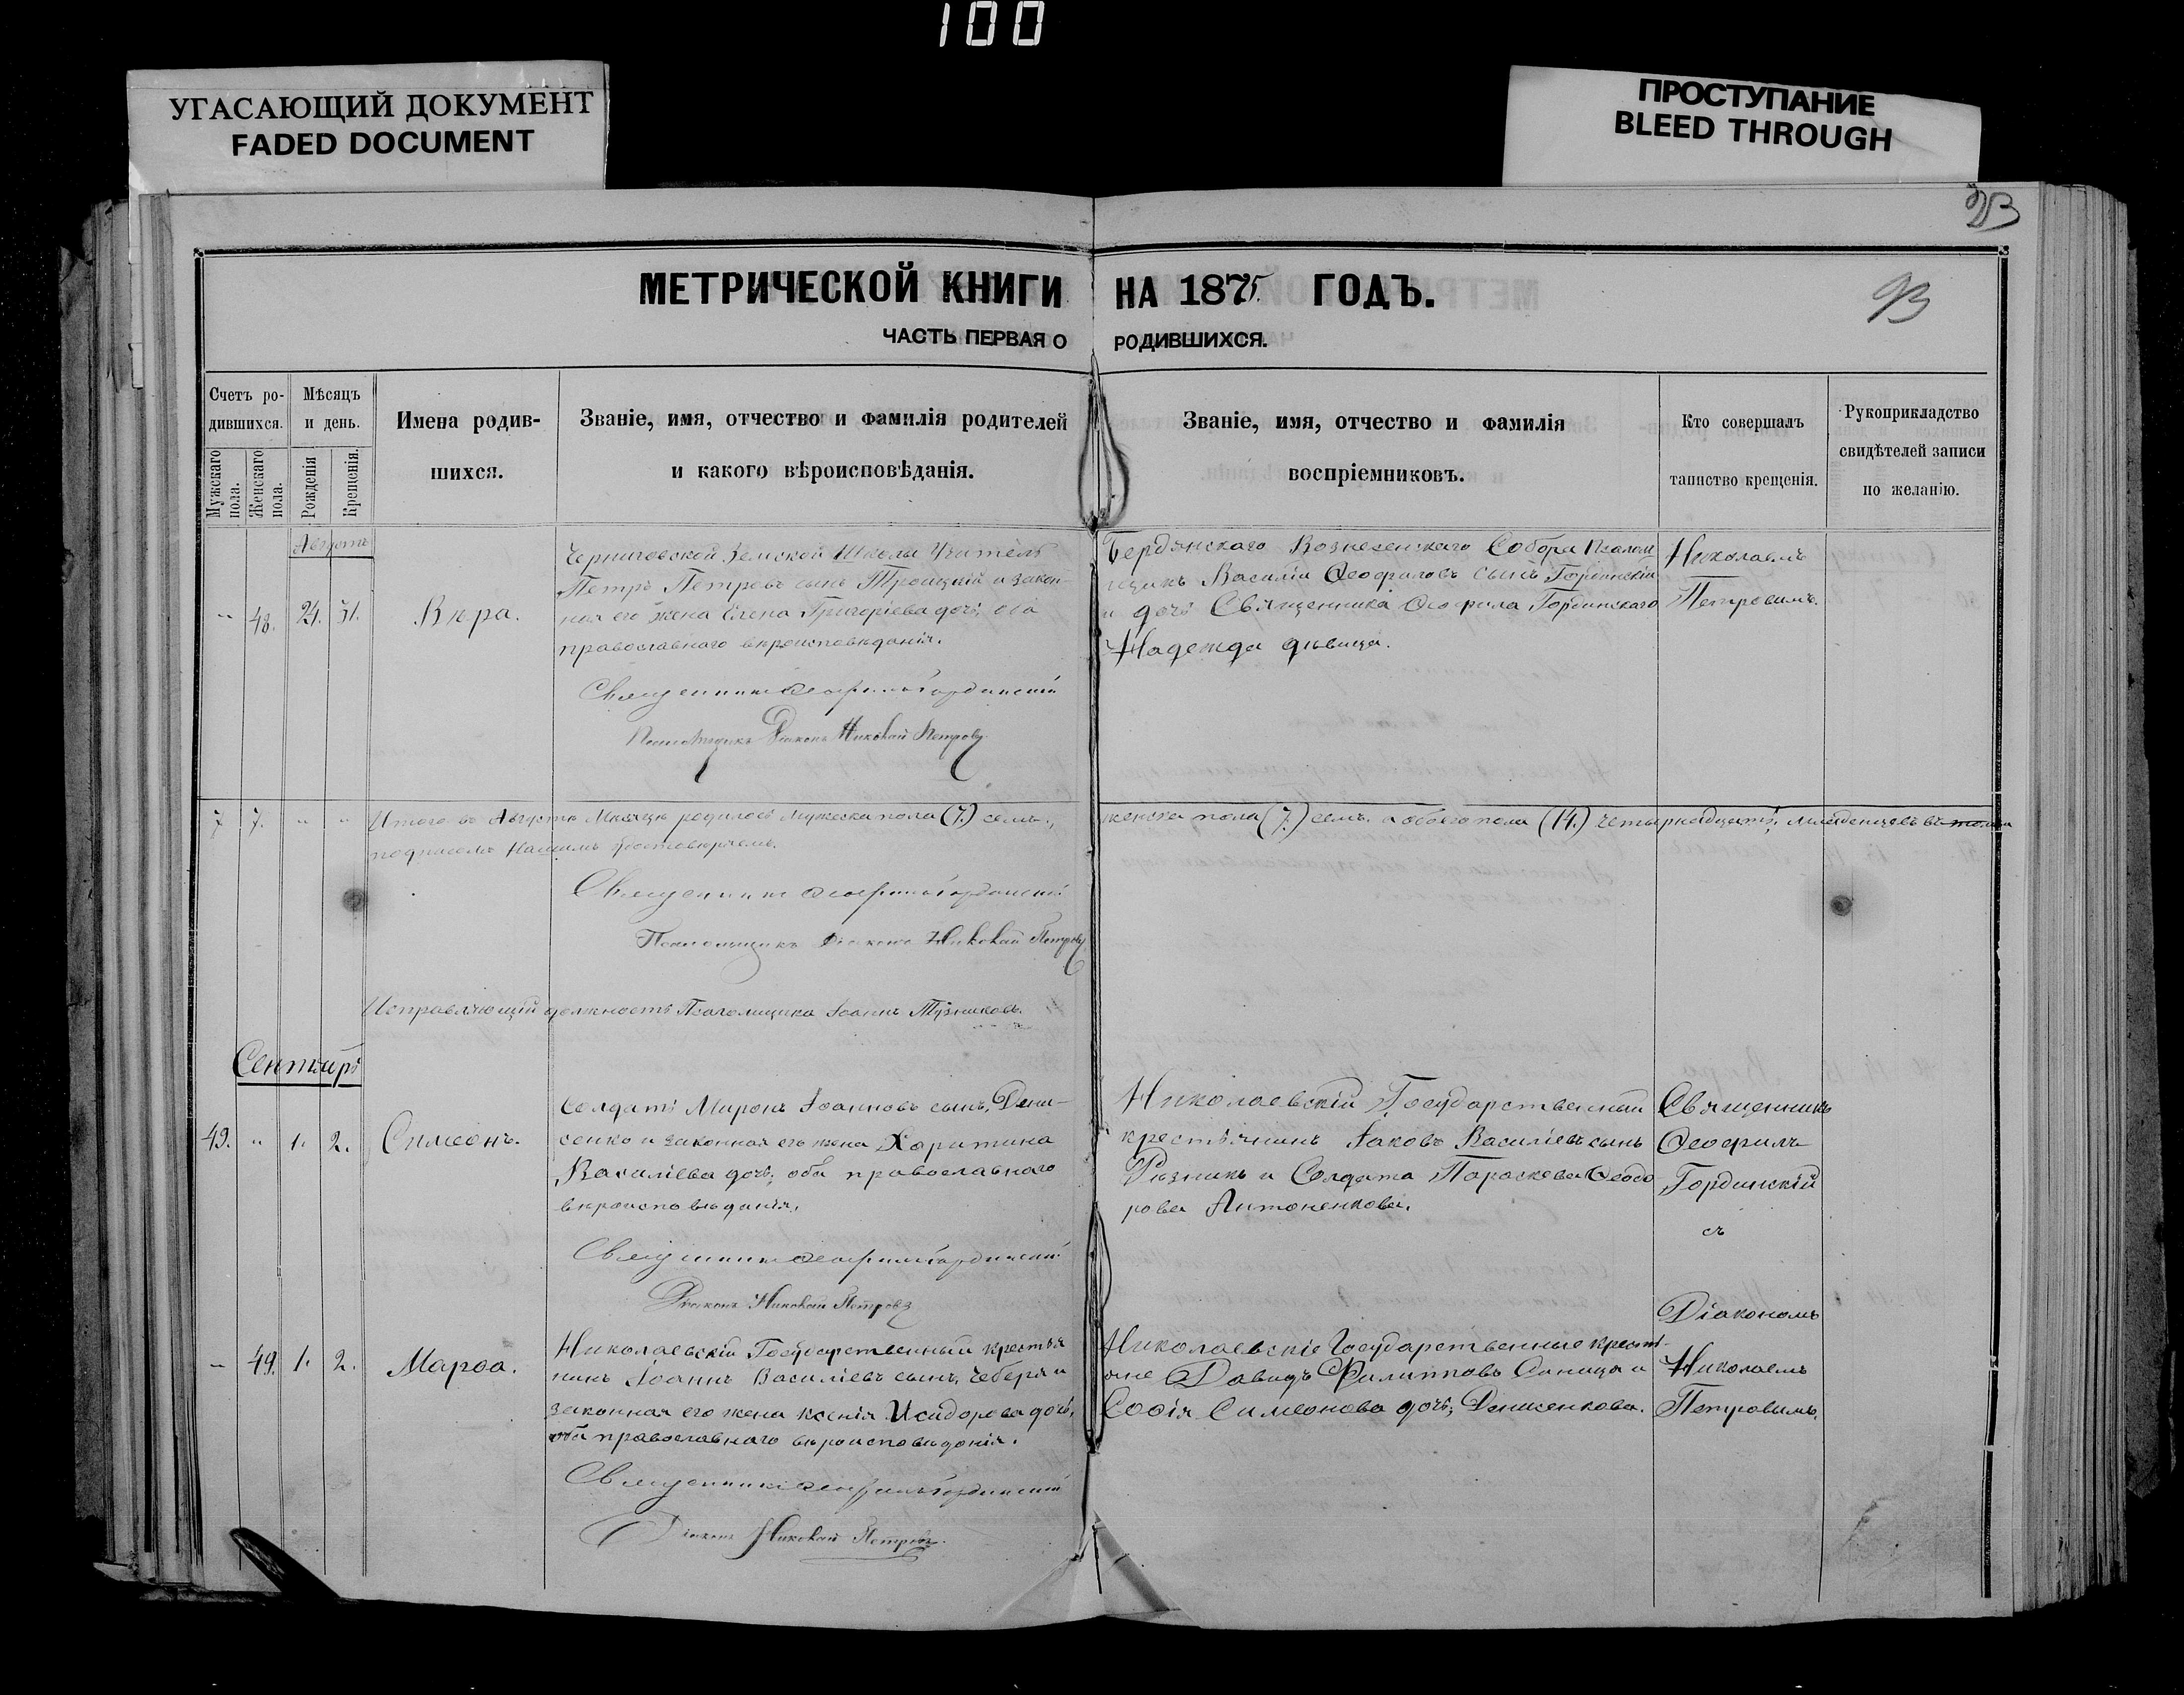 100
УГАСАЮЩИЙ ДОКУМЕНТ
FADED DOCUMENT
ПРОСТУПАНИЕ
BLEED THROUGH
93
МЕТРИЧЕСКОЙ КНИГИ НА 1875 ГОДЪ.
93
ЧАСТЬ ПЕРВАЯ О РОДИВШИХСЯ.
Счетъ ро-
дившихся.
Мужскаго
пола.
Женскаго
пола.
Мѣсяцъ
и день.
Рожденія
Крещенія.
Имена родив-
шихся.
Званіе, имя, отчество и фамилія родителей
и какого вѣроисповѣданія.
Званіе, имя, отчество и фамилія
воспріемниковъ.
Кто совершалъ
таинство крещенія.
Рукоприкладство
свидѣтелей записи
по желанію.
Августъ
" 48. 24. 31.
Вѣра.
Черниговской Земской Школы Учитель
Петръ Петровъ сынъ Троицкій и закон-
ная его жена Елена Григоріева дочь, оба
православнаго вѣроисповѣданія.
Священникъ Ѳеофилъ Гординскій
Псаломщикъ Діаконъ Николай Петровъ
Бердянскаго Вознесенскаго Собора Псалом
щикъ Василій Ѳеофиловъ сынъ Гординскій
и дочь Священника Ѳеофила Гординскаго
Надежда дѣвица.
Николаемъ
Петровымъ.
7 7. " "
Итого въ Августѣ Мѣсяцѣ родилось Мужеска пола (7.) семь,
женска пола (7.) семь. а обоего пола (14.) четырнадцать, младенцевъ въ
подписомъ Нашимъ удостовѣряемъ.
Священникъ Ѳеофилъ Гординскій
Псаломщикъ Діаконъ Николай Петровъ
Исправляющій должность Псаломщика Іоаннъ
Сентябрь
49. " 1. 2.
Симеонъ.
Солдатъ Миронъ Іоанновъ сынъ, Дени-
сенко и законная его жена Харитина
Василіева дочь; оба православнаго
вѣроисповѣданія.
Священникъ Ѳеофилъ Гординскій
Діаконъ Николай Петровъ
Николаевскій Государственный
крестьянинъ Іаковъ Василіевъ сынъ
Рѣзникъ и Солдатка Параскева Ѳеодо
рова Антоненкова.
Священникъ
Ѳеофилъ
Гординскій
съ
Діакономъ
Николаемъ
Петровымъ.
— 49. 1. 2.
Марѳа.
Николаевскій Государственный крестья
нинъ Іоаннъ Василіевъ сынъ, Чеберя и
законная его жена Ксенія Исидорова дочь,
оба православнаго вѣроисповѣданія.
Священникъ Ѳеофилъ Гординскій
Діаконъ Николай Петровъ
Николаевскіе Государственные крестья-
не Давидъ Филипповъ Синица и
Софія Симеонова дочь, Денисенкова.